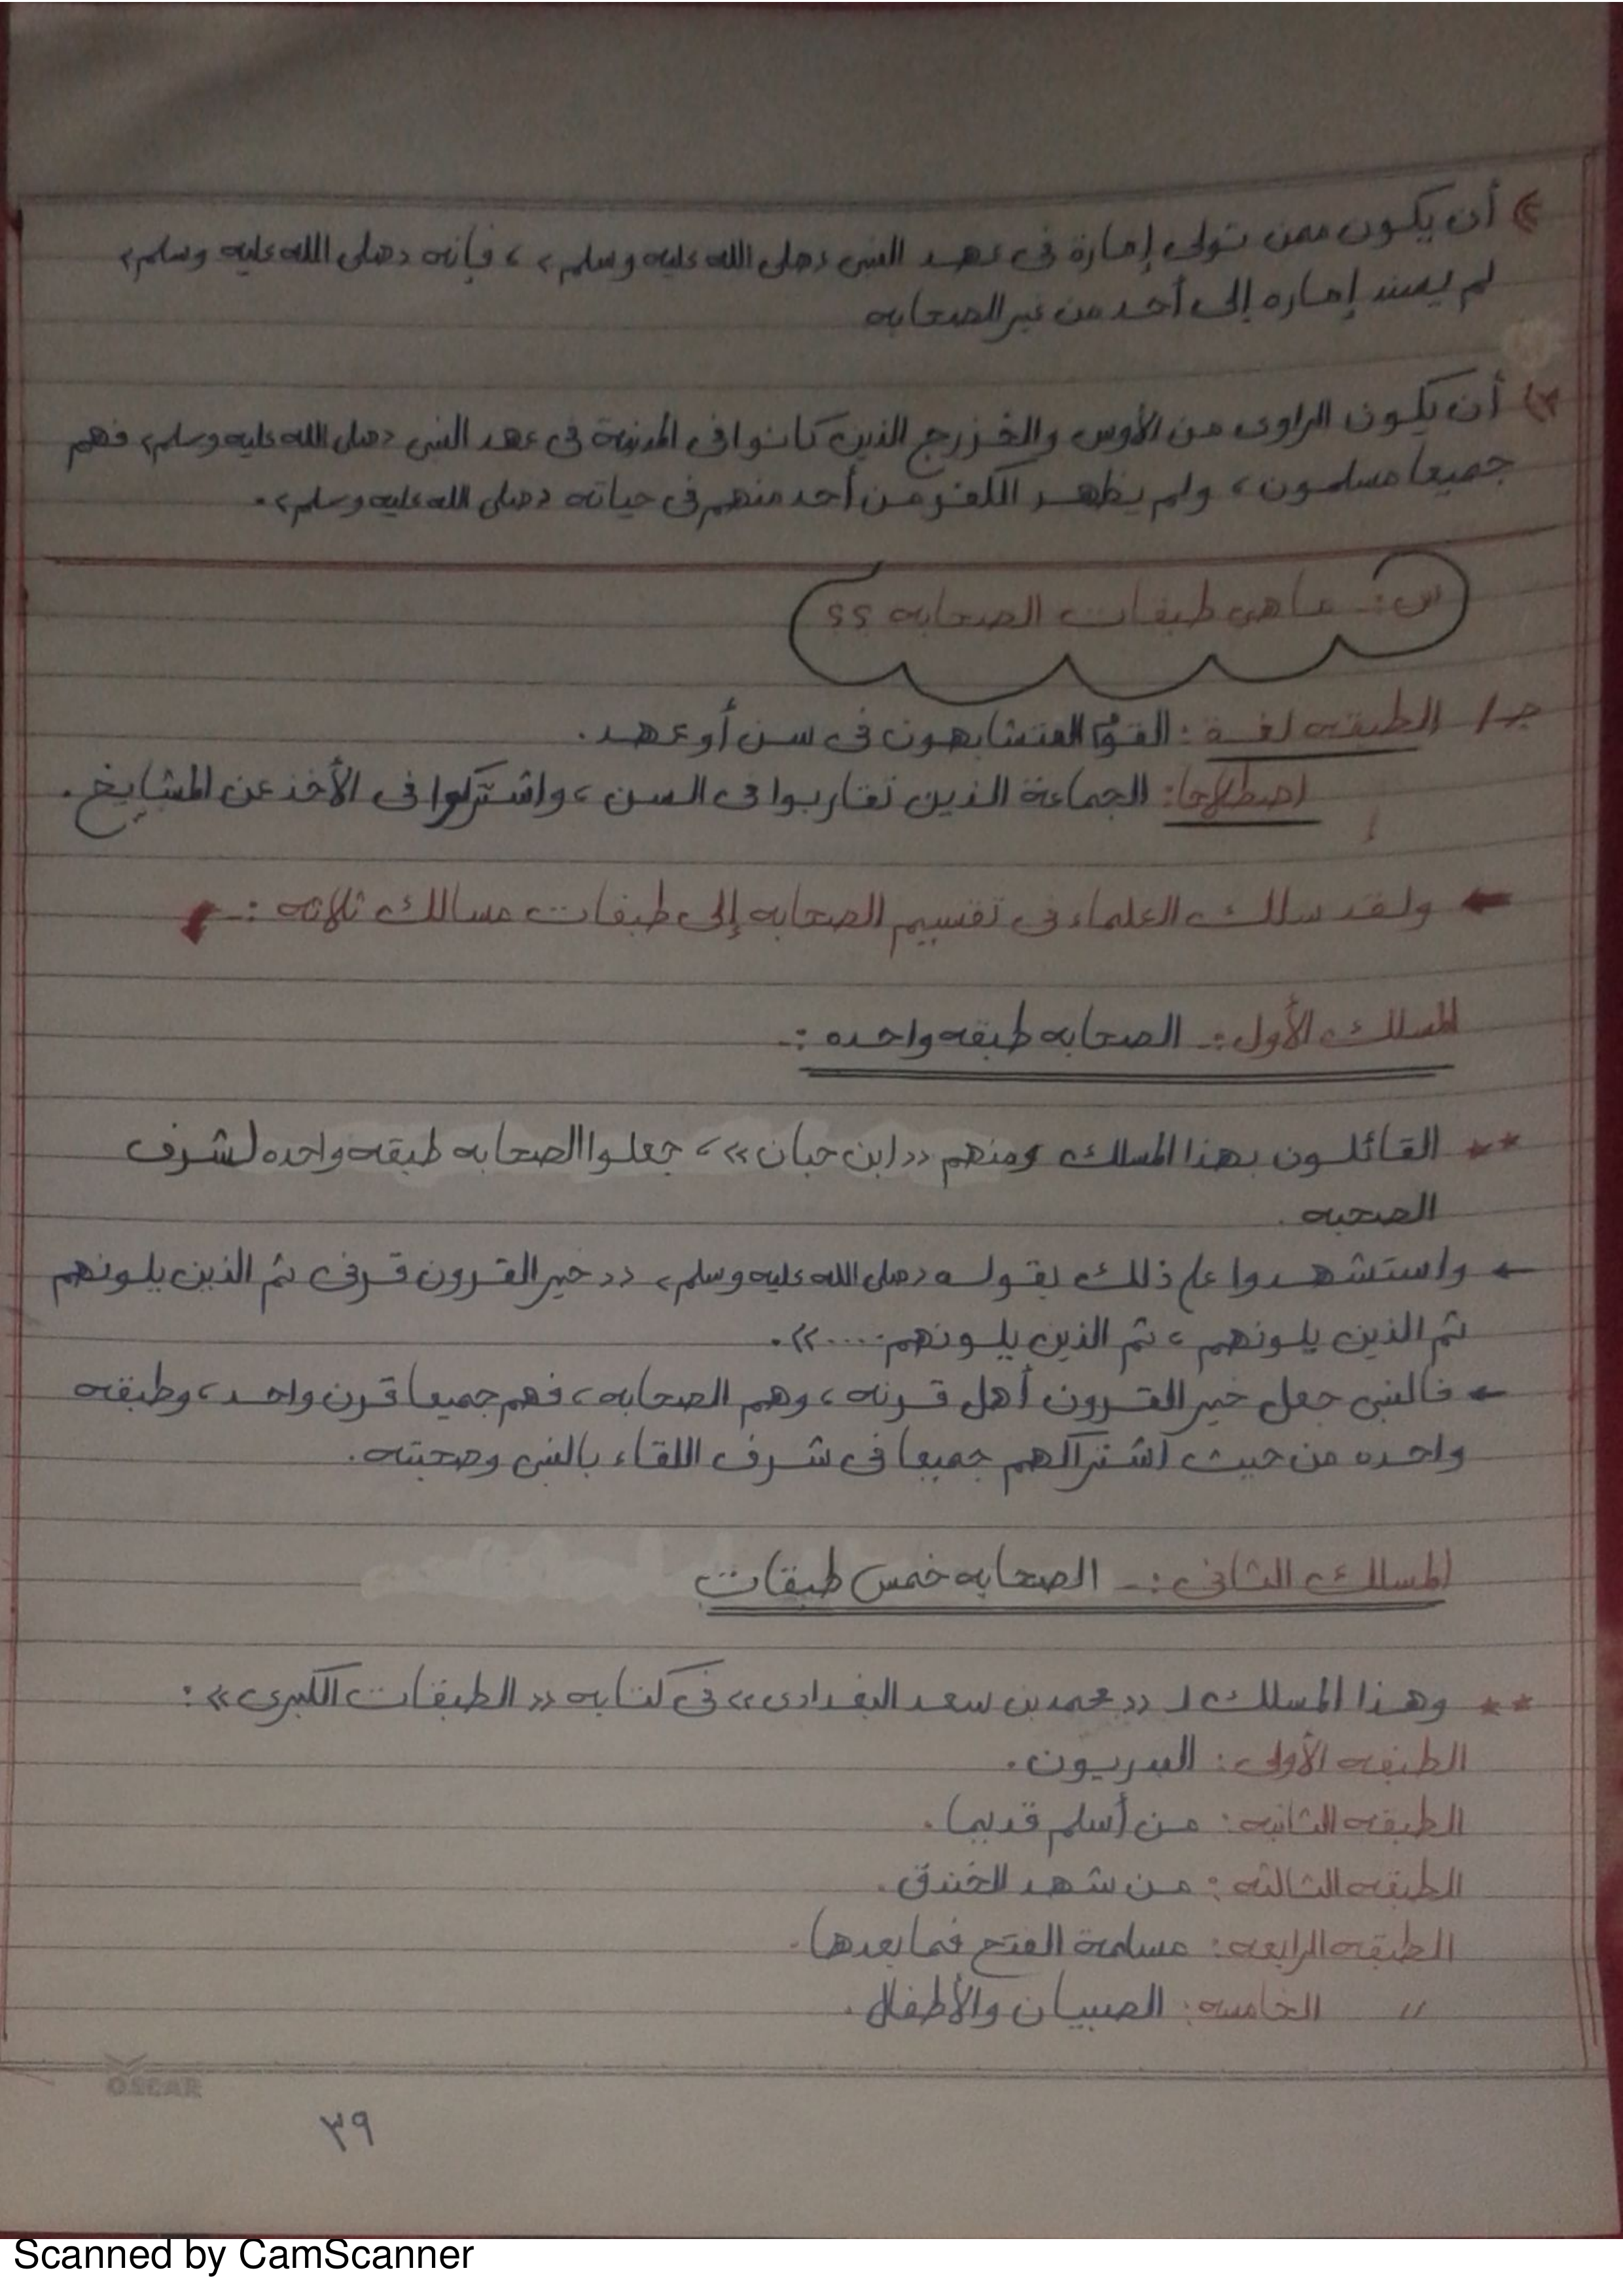 أن يكون ممن تولى إمارة فى عهد النبى «صلى الله عليه وسلم» ، فإنه «صلى الله عليه وسلم»
لم يسند إماره إلى أحد من غير الصحابه
أن يكون الراوى من الأوس والخزرج الذين كانوا فى المدينة فى عهد النبى «صلى الله عليه وسلم» فهم
جميعا مسلمون ، ولم يظهر الكفر من أحد منهم فى حياته «صلى الله عليه وسلم» .
س:- ما هى طبقات الصحابه ؟؟
جـ/ الطبقه لغة : القوم المتشابهون فى سن أو عهد .
اصطلاحا: الجماعة الذين تقاربوا فى السن ، واشتركوا فى الأخذ عن المشايخ .
← ولقد سلك العلماء فى تقسيم الصحابه إلى طبقات مسالك ثلاثه :-
المسلك الأول :- الصحابه طبقه واحده :-
** القائلون بهذا المسلك ومنهم «ابن حبان» ، جعلوا الصحابه طبقه واحده لشرف
الصحبه .
← واستشهدوا على ذلك بقوله «صلى الله عليه وسلم» «خير القرون قرنى ثم الذين يلونهم
ثم الذين يلونهم ، ثم الذين يلونهم ....» .
← فالنبى جعل خير القرون أهل قرنه ، وهم الصحابه ، فهم جميعا قرن واحد ، وطبقه
واحده من حيث اشتراكهم جميعا فى شرف اللقاء بالنبى وصحبته .
المسلك الثانى :- الصحابه خمس طبقات
** وهذا المسلك لـ «محمد بن سعد البغدادى» فى كتابه «الطبقات الكبرى» :
الطبقه الأولى : البدريون .
الطبقه الثانيه : من أسلم قديما .
الطبقه الثالثه : من شهد الخندق .
الطبقه الرابعه : مسلمة الفتح فما بعدها .
〃 الخامسه : الصبيان والأطفال .
OSCAR
٣٩
Scanned by CamScanner